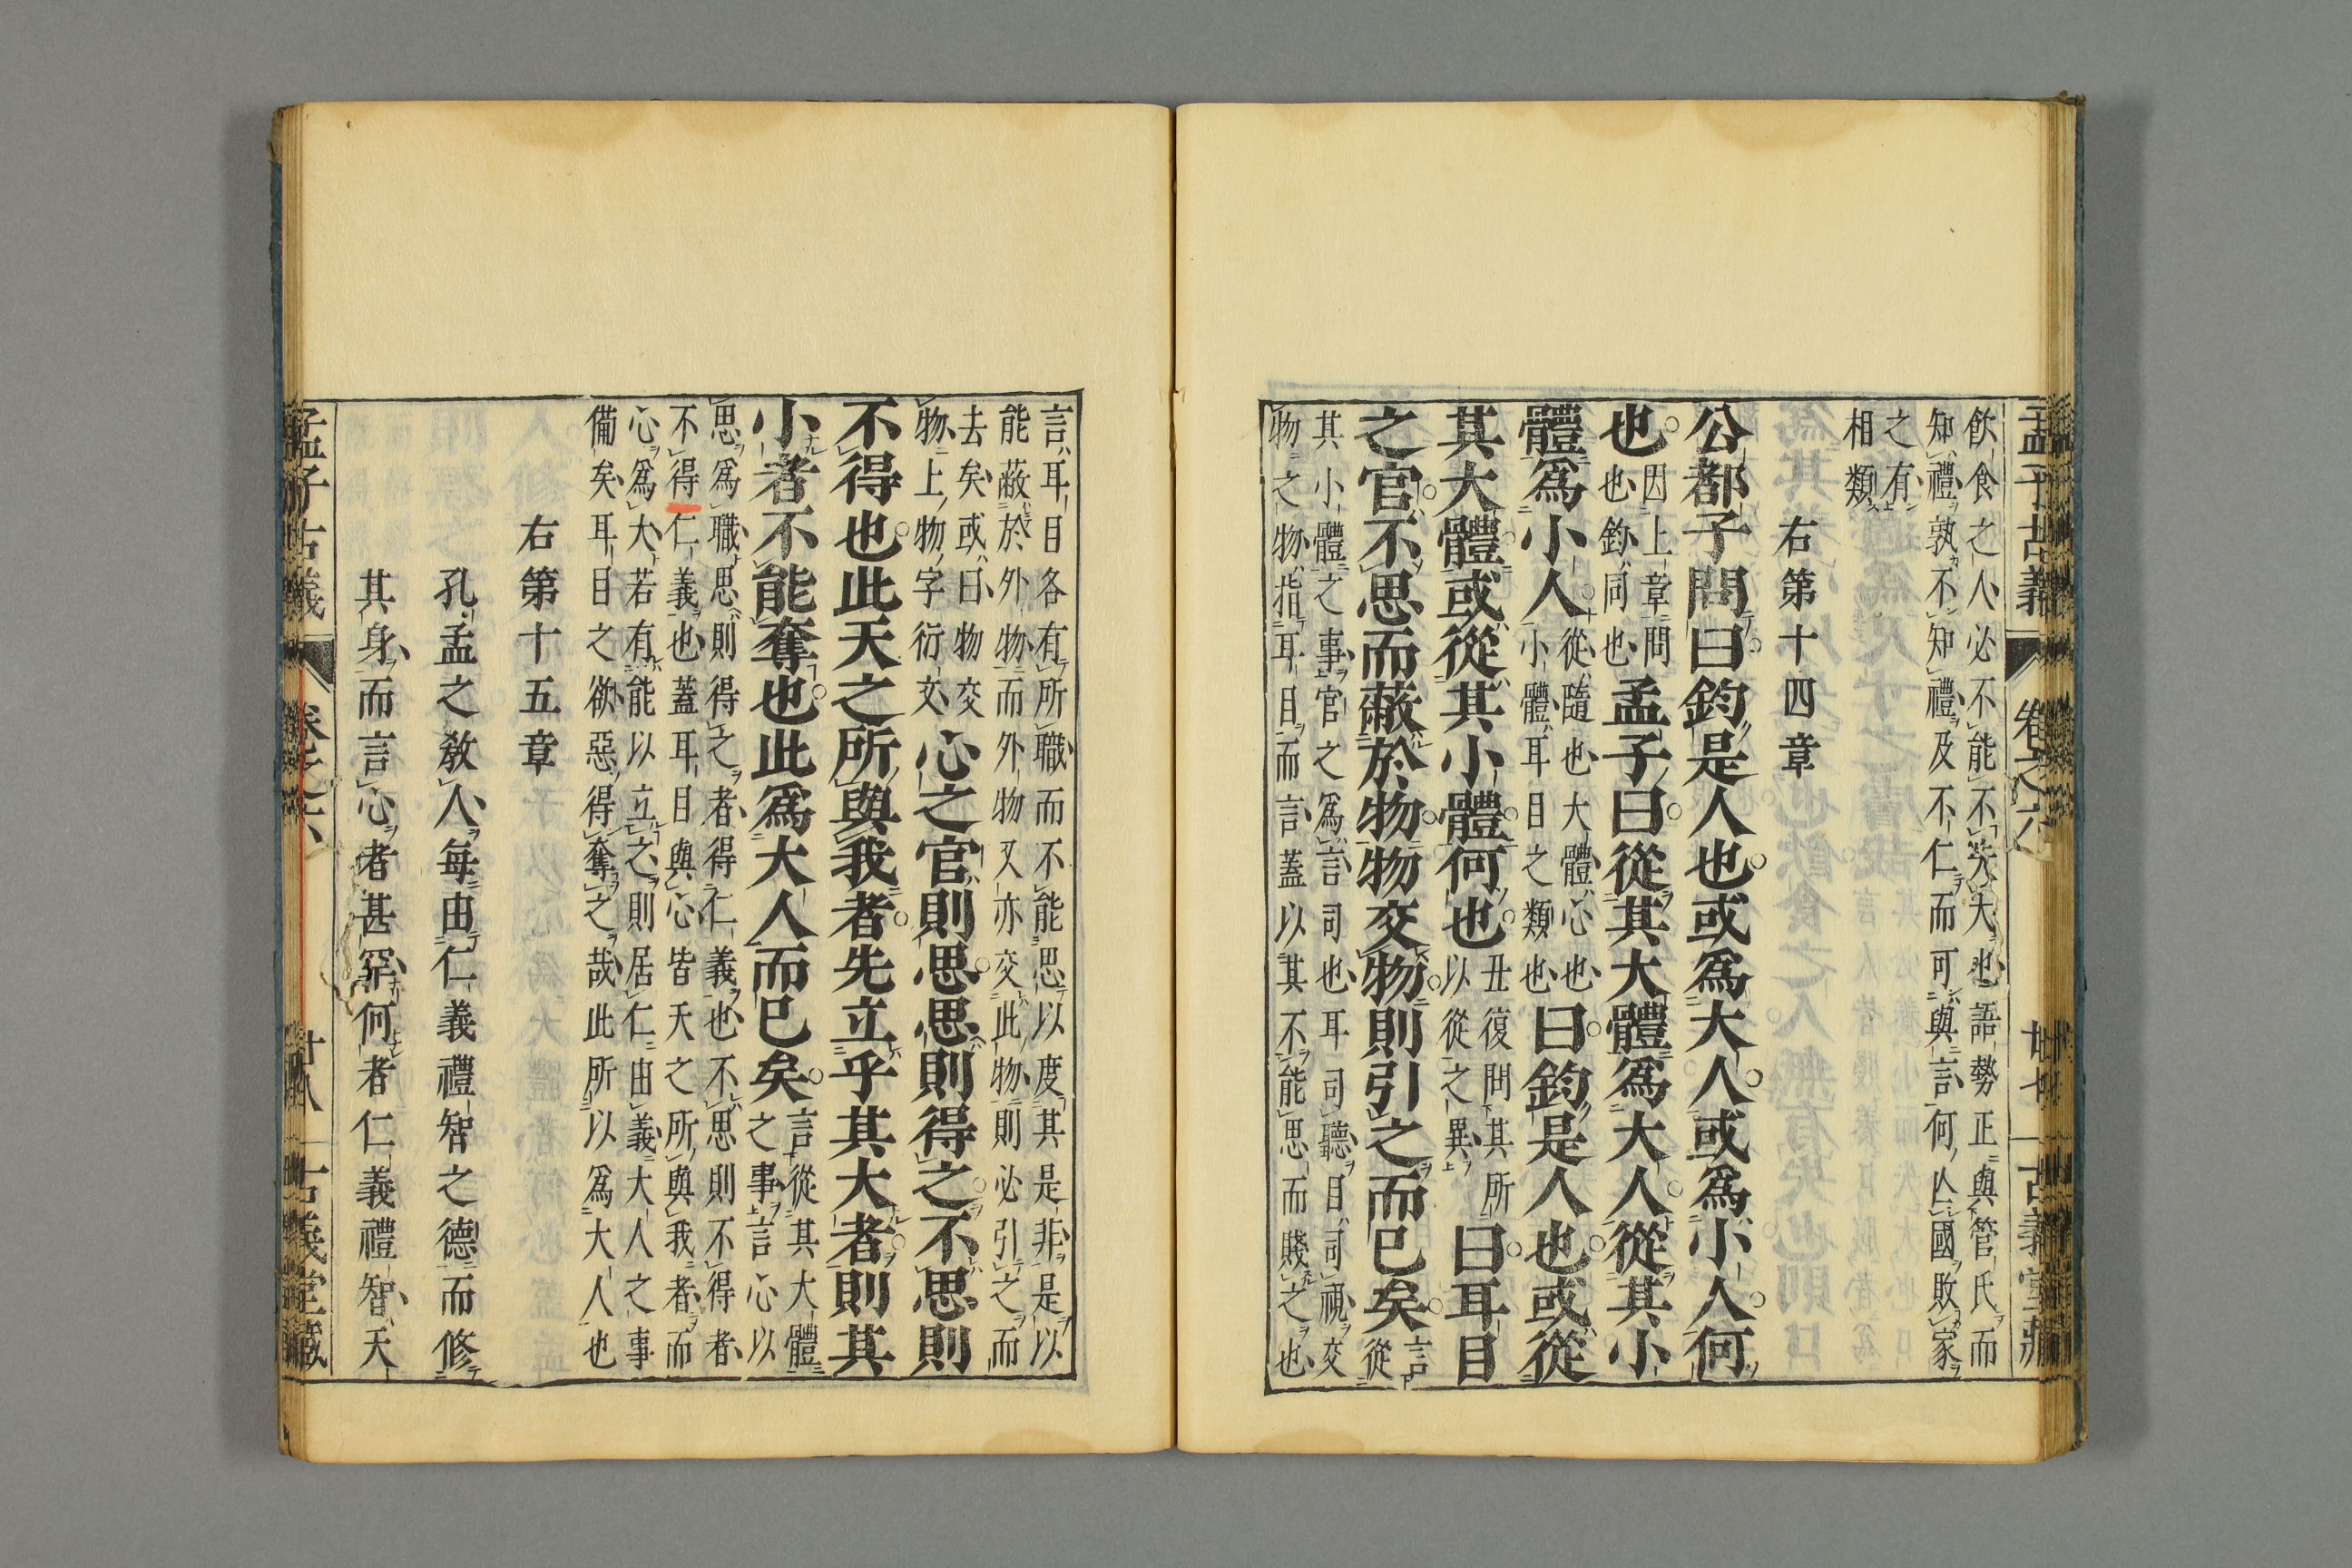 孟子古義 卷之六 廿七 古義堂藏
飮食之人必不能不失大也語勢正與管氏而
知禮孰不知禮及不仁而可與言何亡國敗家
之有
相類
右第十四章
公都子問曰鈞是人也或爲大人或爲小人何
也
因上章問
也鈞同也
孟子曰從其大體爲大人從其小
體爲小人
從隨也大體心也
小體耳目之類也
曰鈞是人也或從
其大體或從其小體何也
丑復問其所
以從之異
曰耳目
之官不思而蔽於物物交物則引之而已矣
言
從
其小體之事官之爲言司也耳司聽目司視交
物之物指耳目而言蓋以其不能思而賤之也
言耳目各有所職而不能思以度其是非是以
能蔽於外物而外物又亦交此物則必引之而
去矣或曰物交
物上物字衍文
心之官則思思則得之不思則
不得也此天之所與我者先立乎其大者則其
小者不能奪也此爲大人而已矣
言從其大體
之事言心以
思爲職思則得之者得仁義也不思則不得者
不得仁義也蓋耳目與心皆天之所與我者而
心爲大若有能以立之則居仁由義大人之事
備矣耳目之欲惡得奪之哉此所以爲大人也
右第十五章
孔孟之敎人每由仁義禮智之德而修
其身而言心者甚罕何者仁義禮智天
孟子古義 卷之六 廿八 古義堂藏